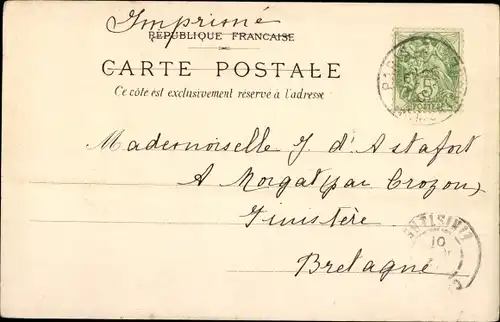 Imprimé
RÉPUBLIQUE FRANCAISE
CARTE POSTALE
Ce côté est exclusivement réservé à l'adresse
Mademoiselle J. d'Astafort
A Morgat (par Crozon)
Finistère
Bretagne
5
FINISTÈRE
10